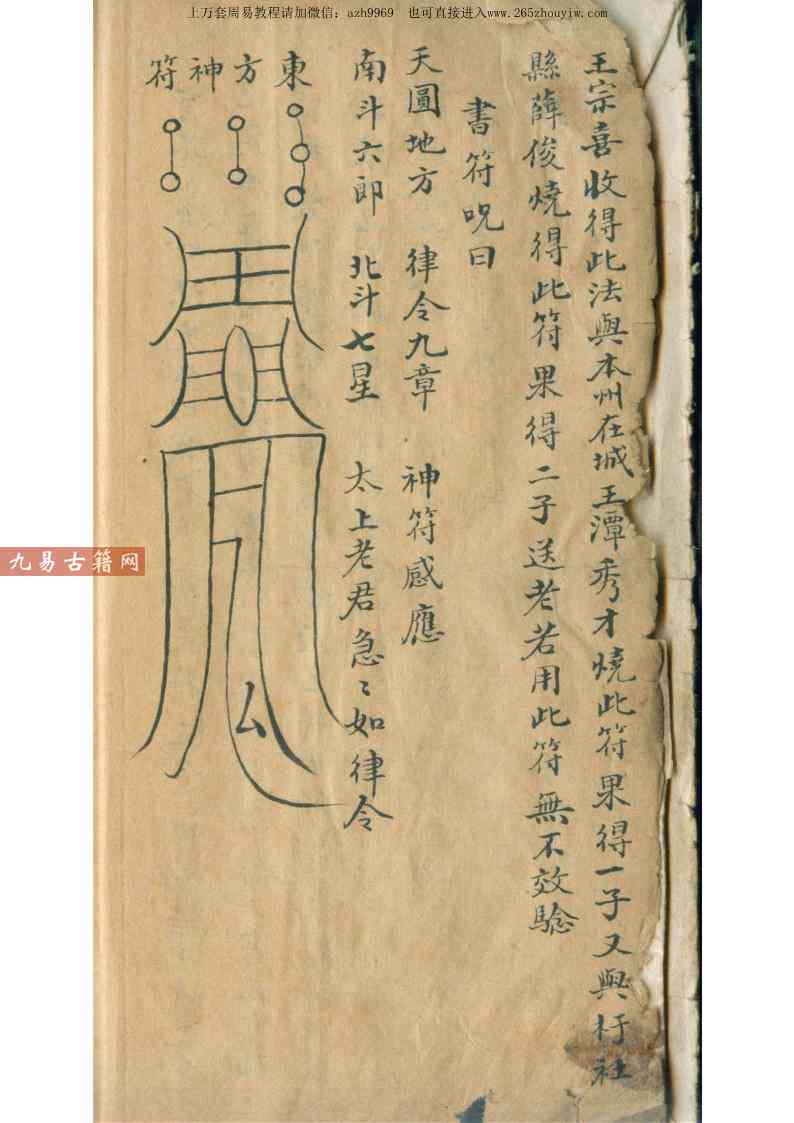 上万套周易教程请加微信：azh9969　也可直接进入www.265zhouyiw.com
王宗喜收得此法與本州在城王潭秀才燒此符果得一子又與杅社
縣薛俊燒得此符果得二子送老若用此符無不效驗
書符呪曰
天圓地方　律令九章　神符感應
南斗六郎　北斗七星　太上老君急〻如律令
東方神符
九易古籍网